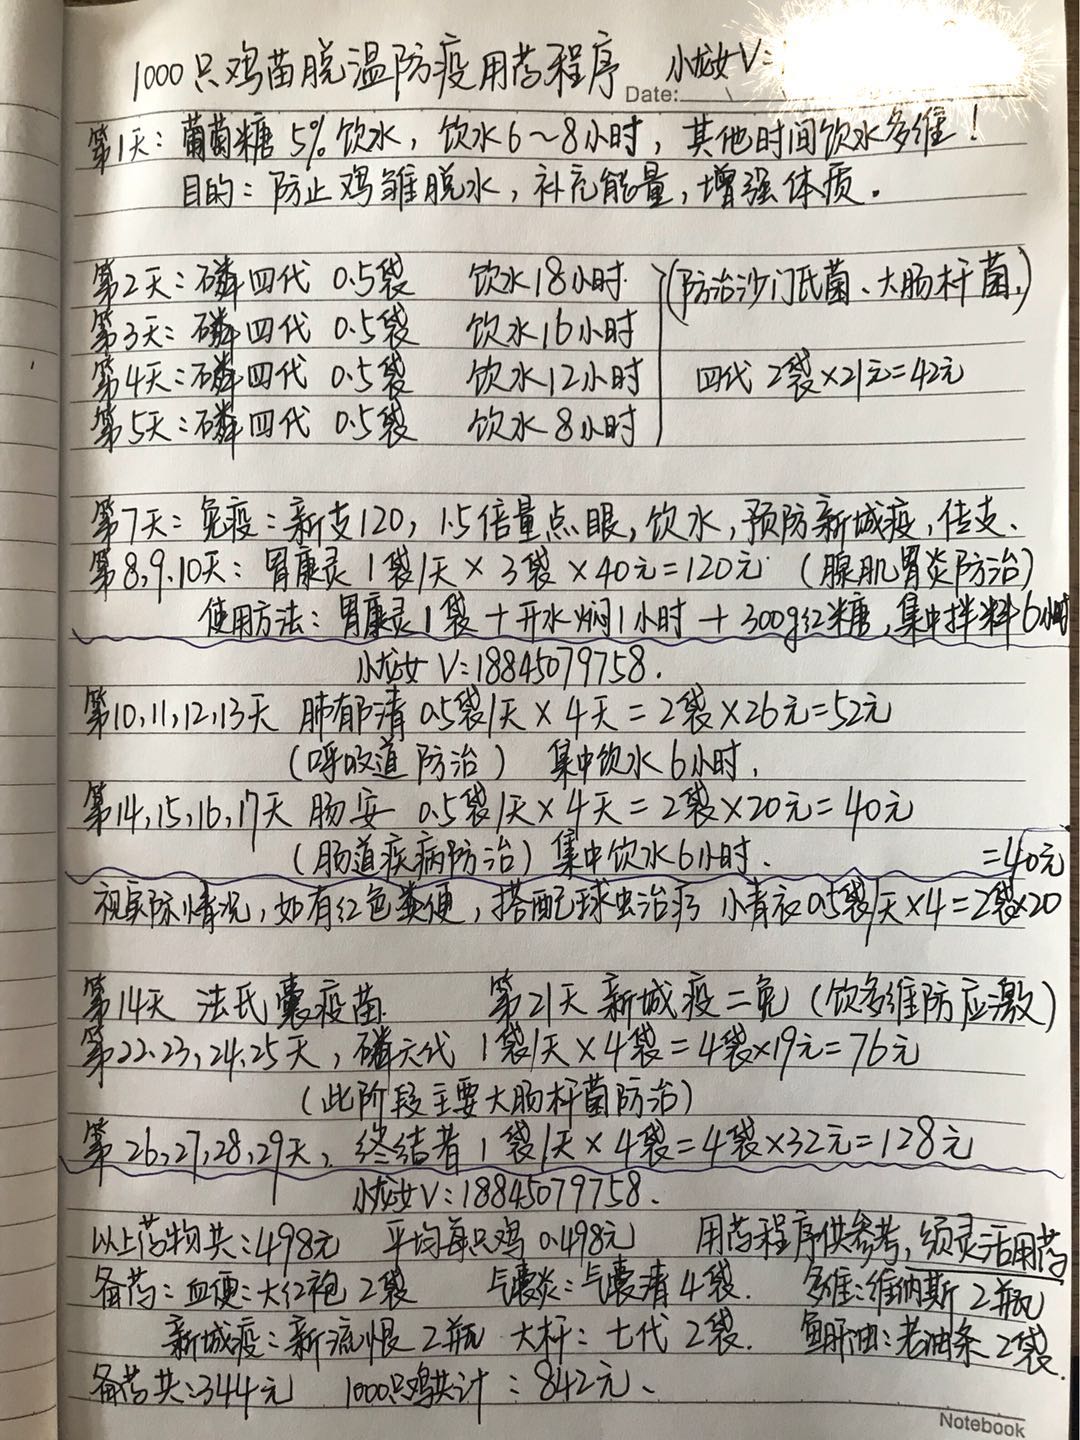 1000只鸡苗脱温防疫用药程序 小龙女V:
Date:
第1天：葡萄糖 5% 饮水，饮水6～8小时，其他时间饮水多维！
目的：防止鸡雏脱水，补充能量，增强体质。
第2天：磷四代 0.5袋 饮水18小时 (防治沙门氏菌、大肠杆菌,)
第3天：磷四代 0.5袋 饮水16小时
第4天：磷四代 0.5袋 饮水12小时 四代 2袋×21元=42元
第5天：磷四代 0.5袋 饮水8小时
第7天：免疫：新支120，1.5倍量点眼，饮水，预防新城疫，传支、
第8,9.10天：胃康灵 1袋/天 × 3袋 × 40元=120元 (腺肌胃炎防治)
使用方法：胃康灵1袋 + 开水焖1小时 + 300g红糖，集中拌料6小时
小龙女 V=18845079758.
第10,11,12,13天 肺郁清 0.5袋/天 × 4天 = 2袋×26元=52元
(呼吸道防治) 集中饮水6小时.
第14,15,16,17天 肠安 0.5袋/天 × 4天 = 2袋×20元=40元
(肠道疾病防治) 集中饮水6小时. =40元
视实际情况，如有红色粪便，搭配球虫治疗 小青衣0.5袋/天×4=2袋×20
第14天 法氏囊疫苗. 第21天 新城疫二免 (饮多维防应激)
第22.23,24,25天，磷六代 1袋/天×4袋=4袋×19元=76元
(此阶段主要大肠杆菌防治)
第26,27,28,29天，终结者 1袋/天×4袋=4袋×32元=128元
小龙女V:18845079758.
以上药物共:498元 平均每只鸡0.498元 用药程序供参考，须灵活用药
备药：血便:大红袍2袋 气囊炎:气囊清4袋. 多维:维纳斯2瓶
新城疫:新流恨2瓶 大杆:七代2袋. 鱼肝油:老油条2袋.
备药共:344元 1000只鸡共计：842元、
Notebook